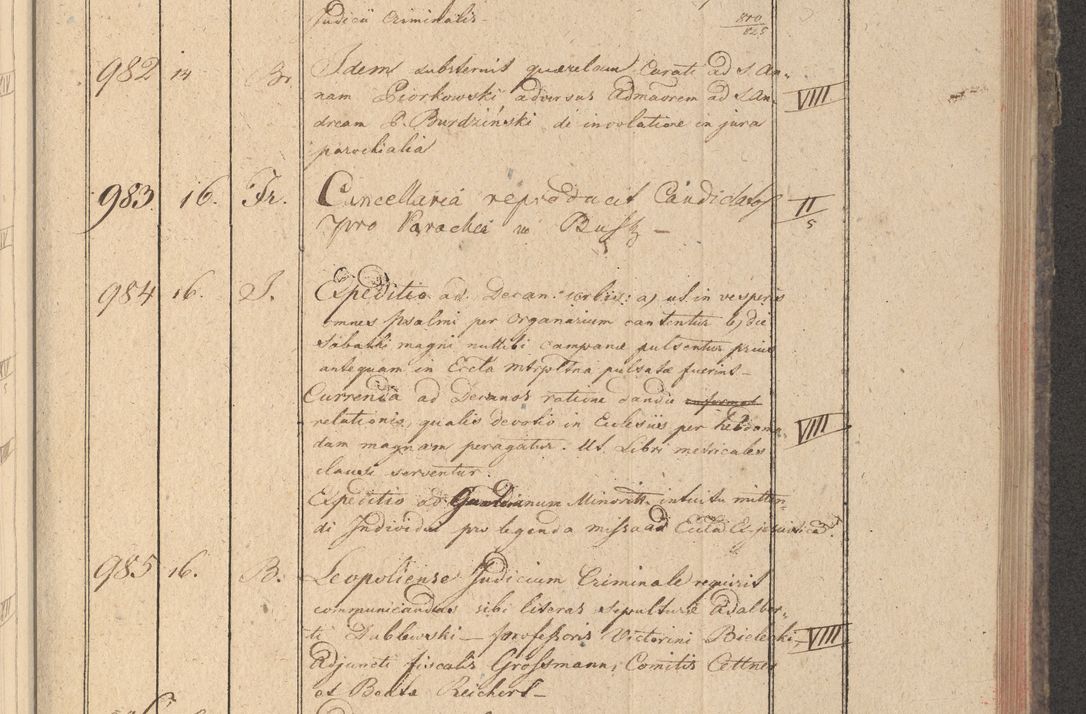 Judicii Criminalis
870
825
982 14 Br. Idem substernit quaerelam Curati ad S. An-
nam Piorkowski adversus Admaorem ad S. An- VIII
dream P. Burdziński di involatione in jura
parochialia
983. 16. Fr. Cancellaria reproducit Candidatos II
pro Parachia in Busk – 5
984 16. J. Expeditio ad Decan: urbis: a, ut in vesperis
omnes psalmi per organarium cantentur b, die
Sabathi magni nullibi campanae pulsentur prius
antequam in Eccla Mtrpltna pulsatae fuerint –
Currenda ad Decanos ratione dandae
relationis, qualis devotio in Eclesiis per hebdoma- VIII
dam magnam peragatur. Ut Libri metricales
clausi serventur.
Expeditio ad Guardianum Minorit. intuitu mitten-
di Individui pro legenda missa ad Eccla Exjesuitica
985 16. B. Leopoliense Judicium Criminale requirit
communicandas sibi literas sepulturae Adalber-
ti Dublewski – professoris Victorini Bielecki, VIII
Adjuncti fiscalis Grossmann, Comitis Cettner
et Beata Reichert –